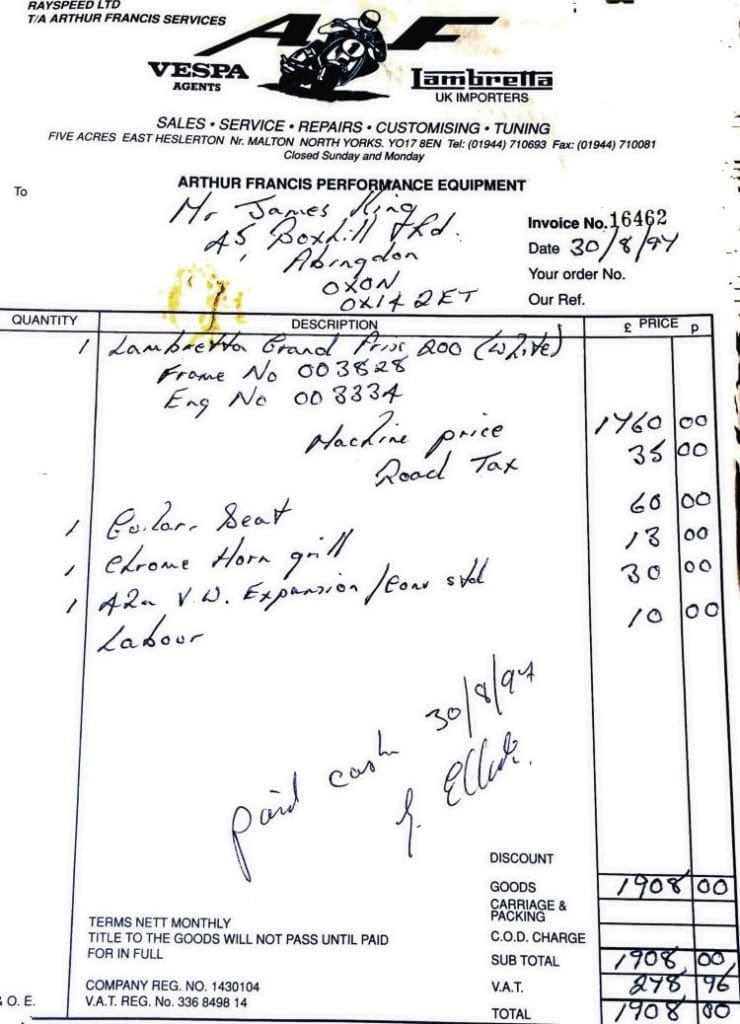 RAYSPEED LTD
T/A ARTHUR FRANCIS SERVICES
AF
1
VESPA
AGENTS
Lambretta
UK IMPORTERS
SALES • SERVICE • REPAIRS • CUSTOMISING • TUNING
FIVE ACRES EAST HESLERTON Nr. MALTON NORTH YORKS. YO17 8EN Tel: (01944) 710693 Fax: (01944) 710081
Closed Sunday and Monday
To
ARTHUR FRANCIS PERFORMANCE EQUIPMENT
Mr James King
45, Boxhill Rd.
Abingdon
OXON
OX14 2ET
Invoice No. 16462
Date 30/8/97
Your order No.
Our Ref.
QUANTITY DESCRIPTION £ PRICE p
1 Lambretta Grand Prix 200 (White)
Frame No 003828
Eng No 003334
Machine price 1760 00
Road Tax 35 00
1 Seat 60 00
1 Chrome Horn grill 13 00
1 V.W. Expansion / Conv std 30 00
Labour 10 00
paid cash 30/8/97
DISCOUNT
GOODS 1908 00
CARRIAGE &
PACKING
C.O.D. CHARGE
SUB TOTAL 1908 00
V.A.T. 278 96
TOTAL 1908 00
TERMS NETT MONTHLY
TITLE TO THE GOODS WILL NOT PASS UNTIL PAID
FOR IN FULL
COMPANY REG. NO. 1430104
V.A.T. REG. No. 336 8498 14
& O. E.